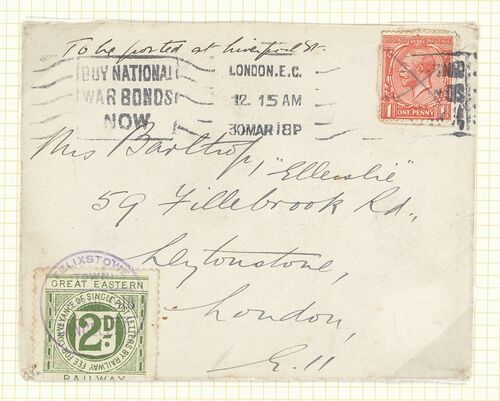 To be posted at Liverpool St.
BUY NATIONAL
WAR BONDS
NOW
LONDON.E.C.
12.15AM
30MAR18P
1 ONE PENNY 1
Mrs Barltrop,
"Ellerslie"
59 Fillebrook Rd.,
Leytonstone,
London,
E.11
FELIXSTOWE
TOWN
GREAT EASTERN
FEE FOR CONVEYANCE OF SINGLE POST LETTERS BY RAILWAY
2D
RAILWAY